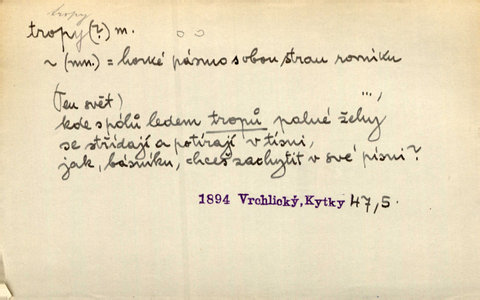 tropy
tropy (?) m.
~ (mn.) = horké pásmo s obou stran rovníku
(Ten svět) ...,
kde s pólů ledem tropů palné žehy
se střídají a potírají v tísni,
jak, básníku, chceš zachytit v své písni?
1894 Vrchlický, Kytky 47,5.